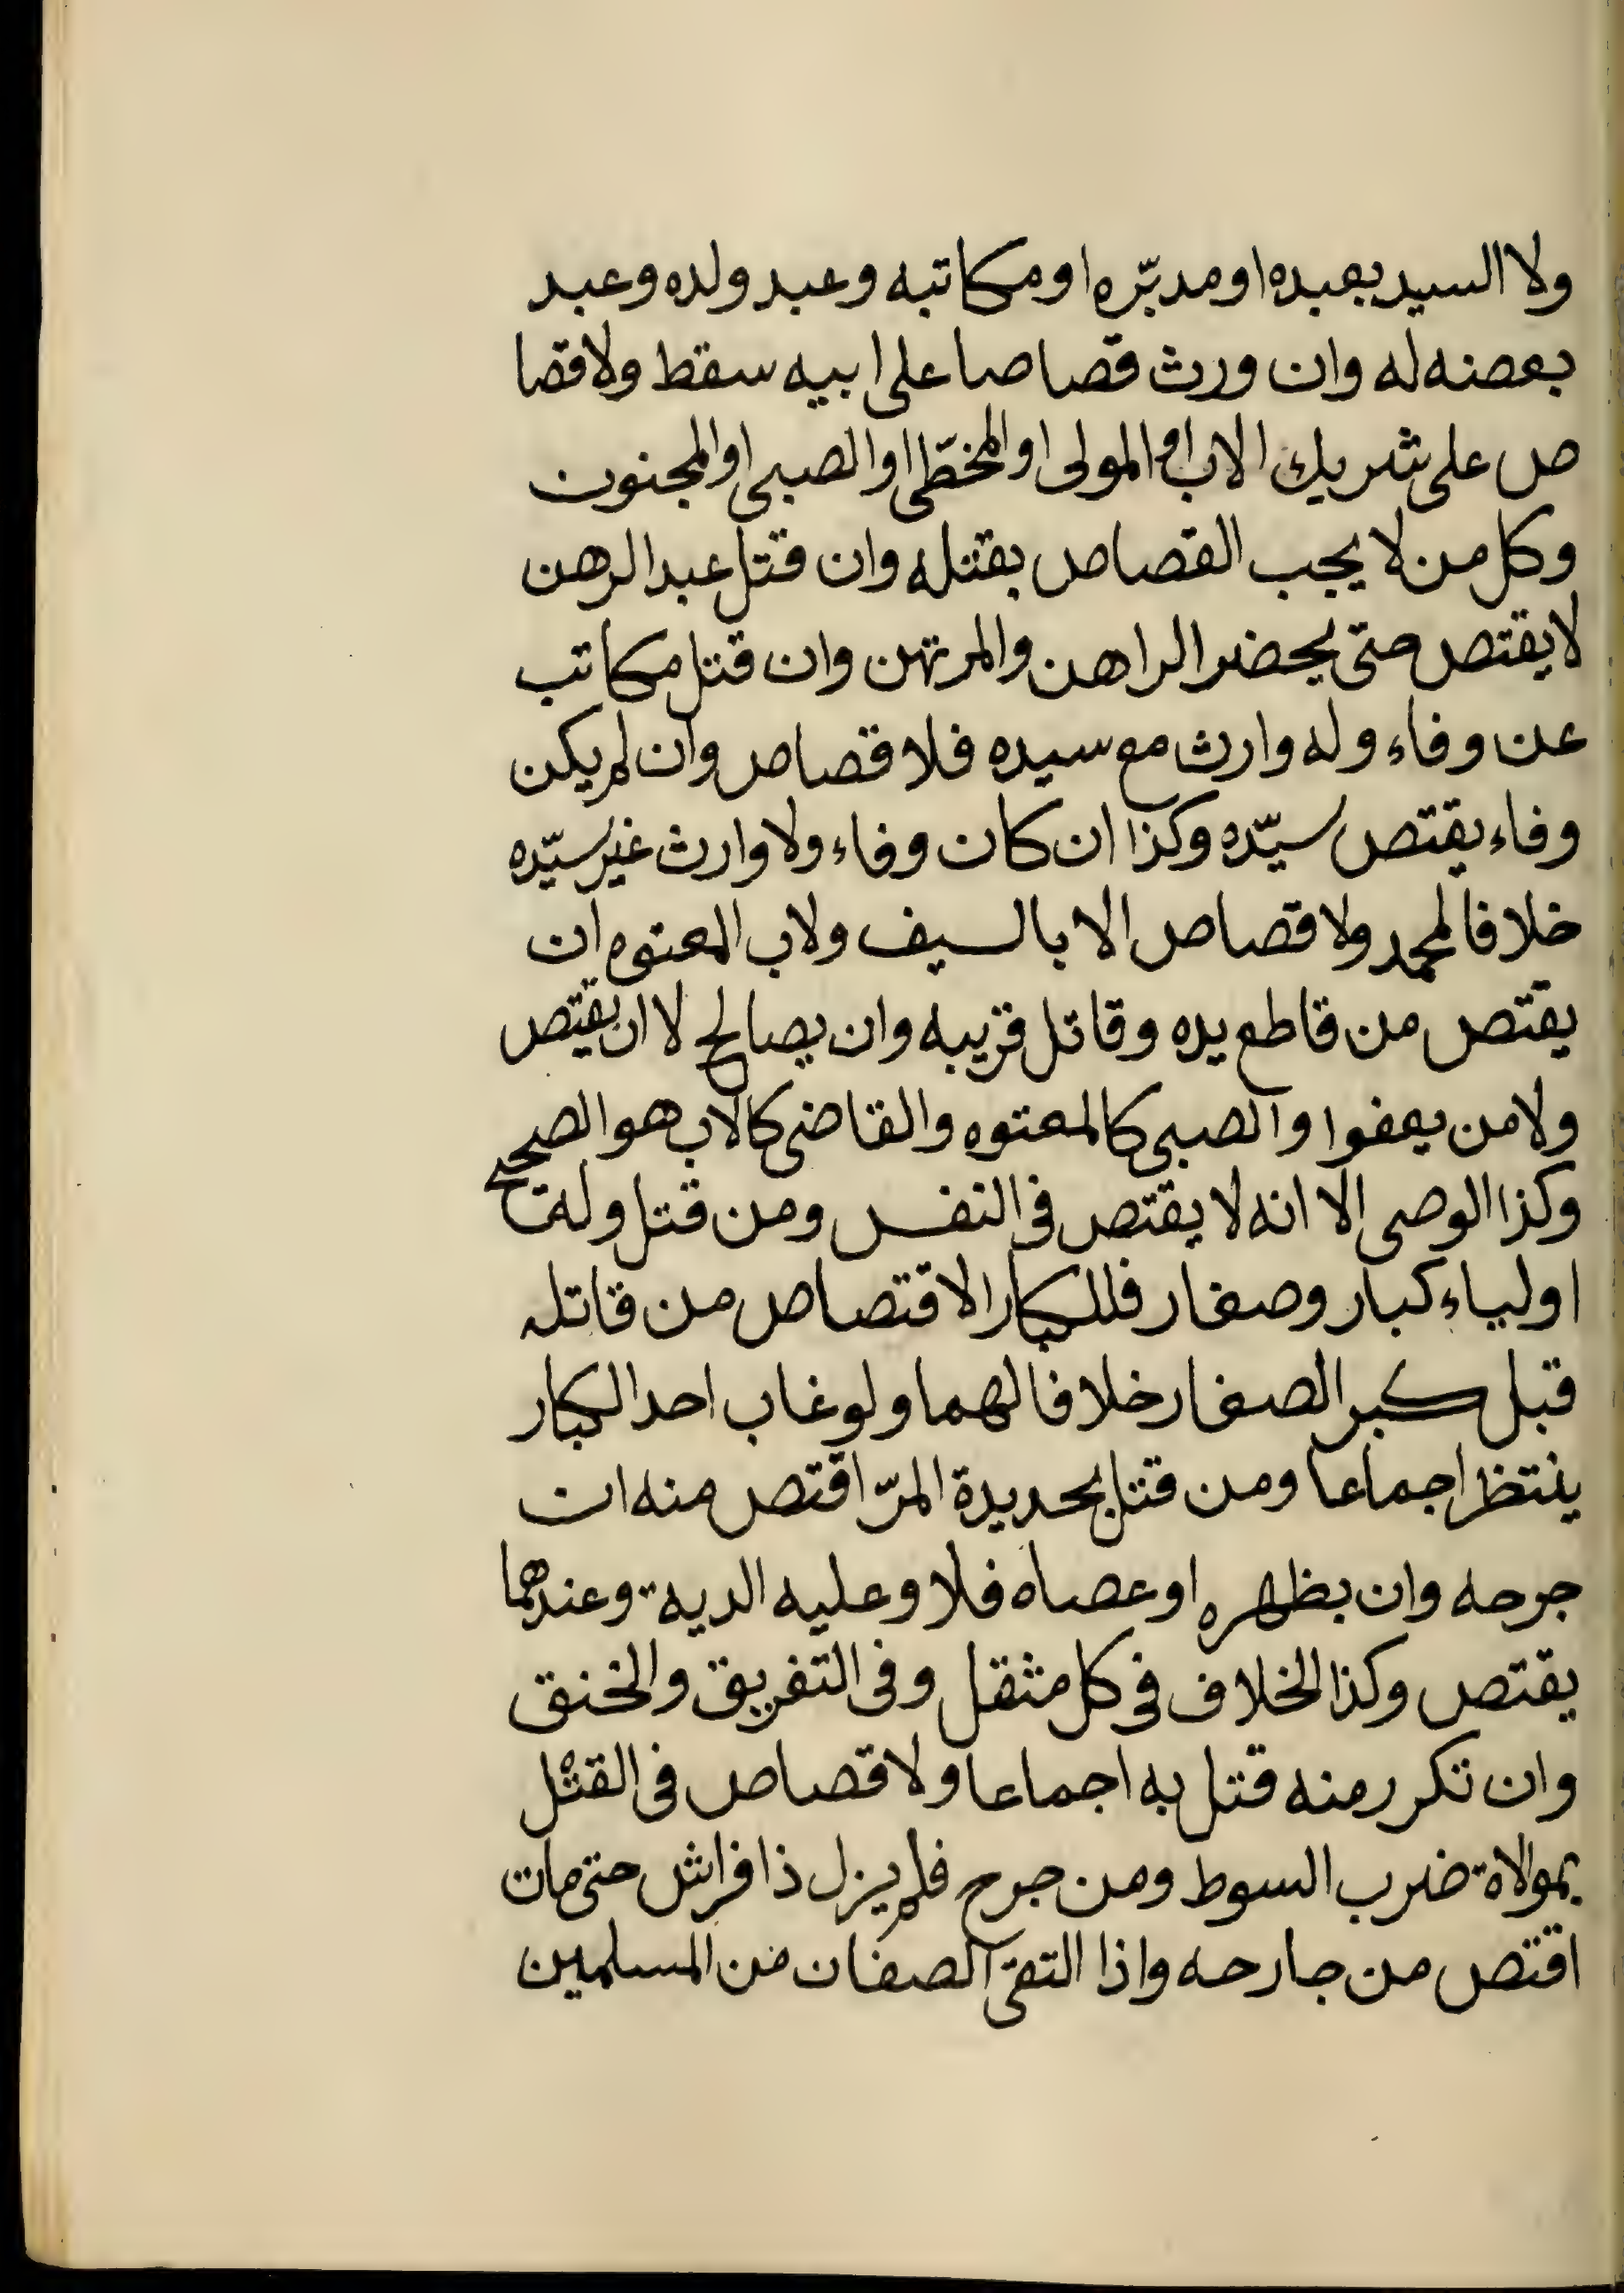 ولا السيد بعبده او مدبّره او مكاتبه وعبد ولده وعبد
بعضه له وان ورث قصاصا على ابيه سقط ولا قصا
ص على شريك الاب او المولى او المخطّى او الصبى او المجنون
وكل من لا يجب القصاص بقتله وان قتل عبد الرهن
لا يقتص حتى يحضر الراهن والمرتهن وان قتل مكاتب
عن وفاء وله وارث مع سيده فلا قصاص وان لم يكن
وفاء يقتص سيّده وكذا ان كان وفاء ولا وارث غير سيّده
خلافا لمحمد ولا قصاص الا بالسيف ولاب المعتوه ان
يقتص من قاطع يده وقاتل قريبه وان يصالح لا ان يقتص
ولا من يعفوا والصبى كالمعتوه والقاضى كالاب هو الصحيح
وكذا الوصى الا انه لا يقتص فى النفس ومن قتل وله
اولياء كبار وصغار فللكبار الاقتصاص من قاتله
قبل كبر الصغار خلافا لهما ولو غاب احد الكبار
ينتظر اجماعا ومن قتل بحديدة المرّ اقتص منه ان
جرحه وان بظهره او عصاه فلا وعليه الدية وعندهما
يقتص وكذا الخلاف فى كل مثقل وفى التفريق والخنق
وان تكرر منه قتل به اجماعا ولا قصاص فى القتل
بموالاة ضرب السوط ومن جرح فلم يزل ذا فراش حتى مات
اقتص من جارحه واذا التقى الصفان من المسلمين